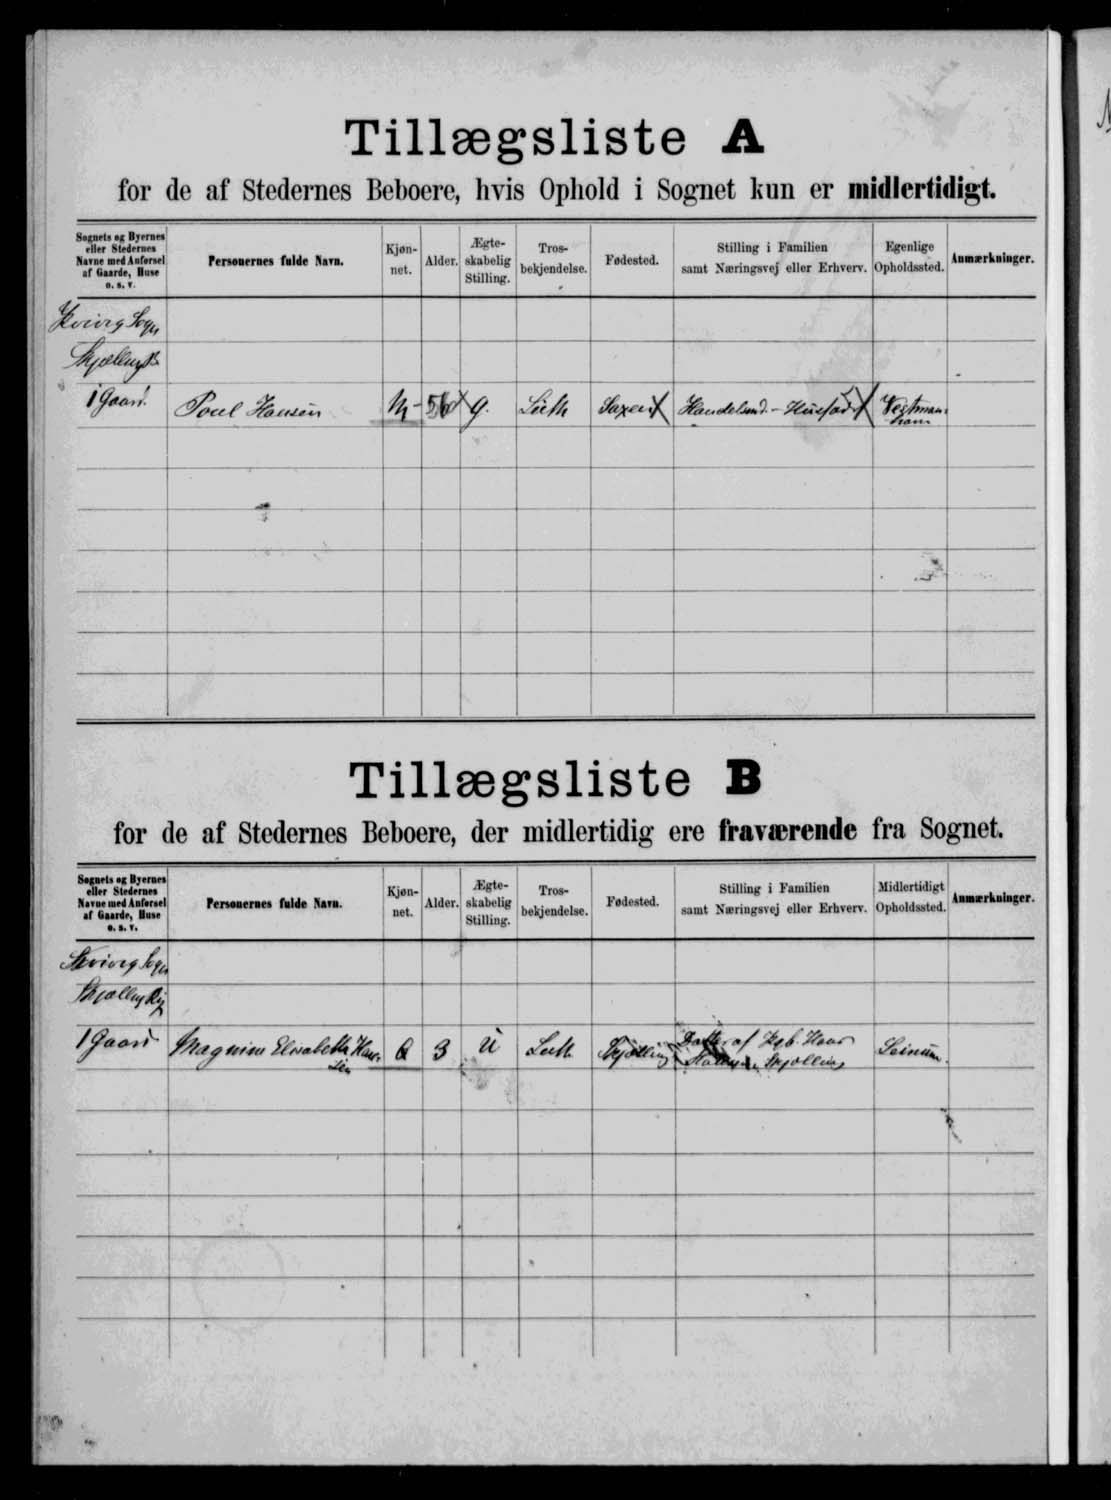 Tillægsliste A
for de af Stedernes Beboere, hvis Ophold i Sognet kun er midlertidigt.
Sognets og Byernes eller Stedernes Navne med Anførsel af Gaarde, Huse o. s. v. Personernes fulde Navn. Kjøn-net. Alder. Ægte-skabelig Stilling. Tros-bekjendelse. Fødested. Stilling i Familien samt Næringsvej eller Erhverv. Egenlige Opholdssted. Anmærkninger.
Kvivig Sogn
1 Gaard. Poul Hansen M - g. Luth Saxen Handelsmd. - Husfader Vestman-havn
Tillægsliste B
for de af Stedernes Beboere, der midlertidig ere fraværende fra Sognet.
Sognets og Byernes eller Stedernes Navne med Anførsel af Gaarde, Huse o. s. v. Personernes fulde Navn. Kjøn-net. Alder. Ægte-skabelig Stilling. Tros-bekjendelse. Fødested. Stilling i Familien samt Næringsvej eller Erhverv. Midlertidigt Opholdssted. Anmærkninger.
Kvivig Sogn
1 Gaard Magnine Elisabeth Han-sen 3 U Luth. Skjælling Datter af Skjælling Leinum.